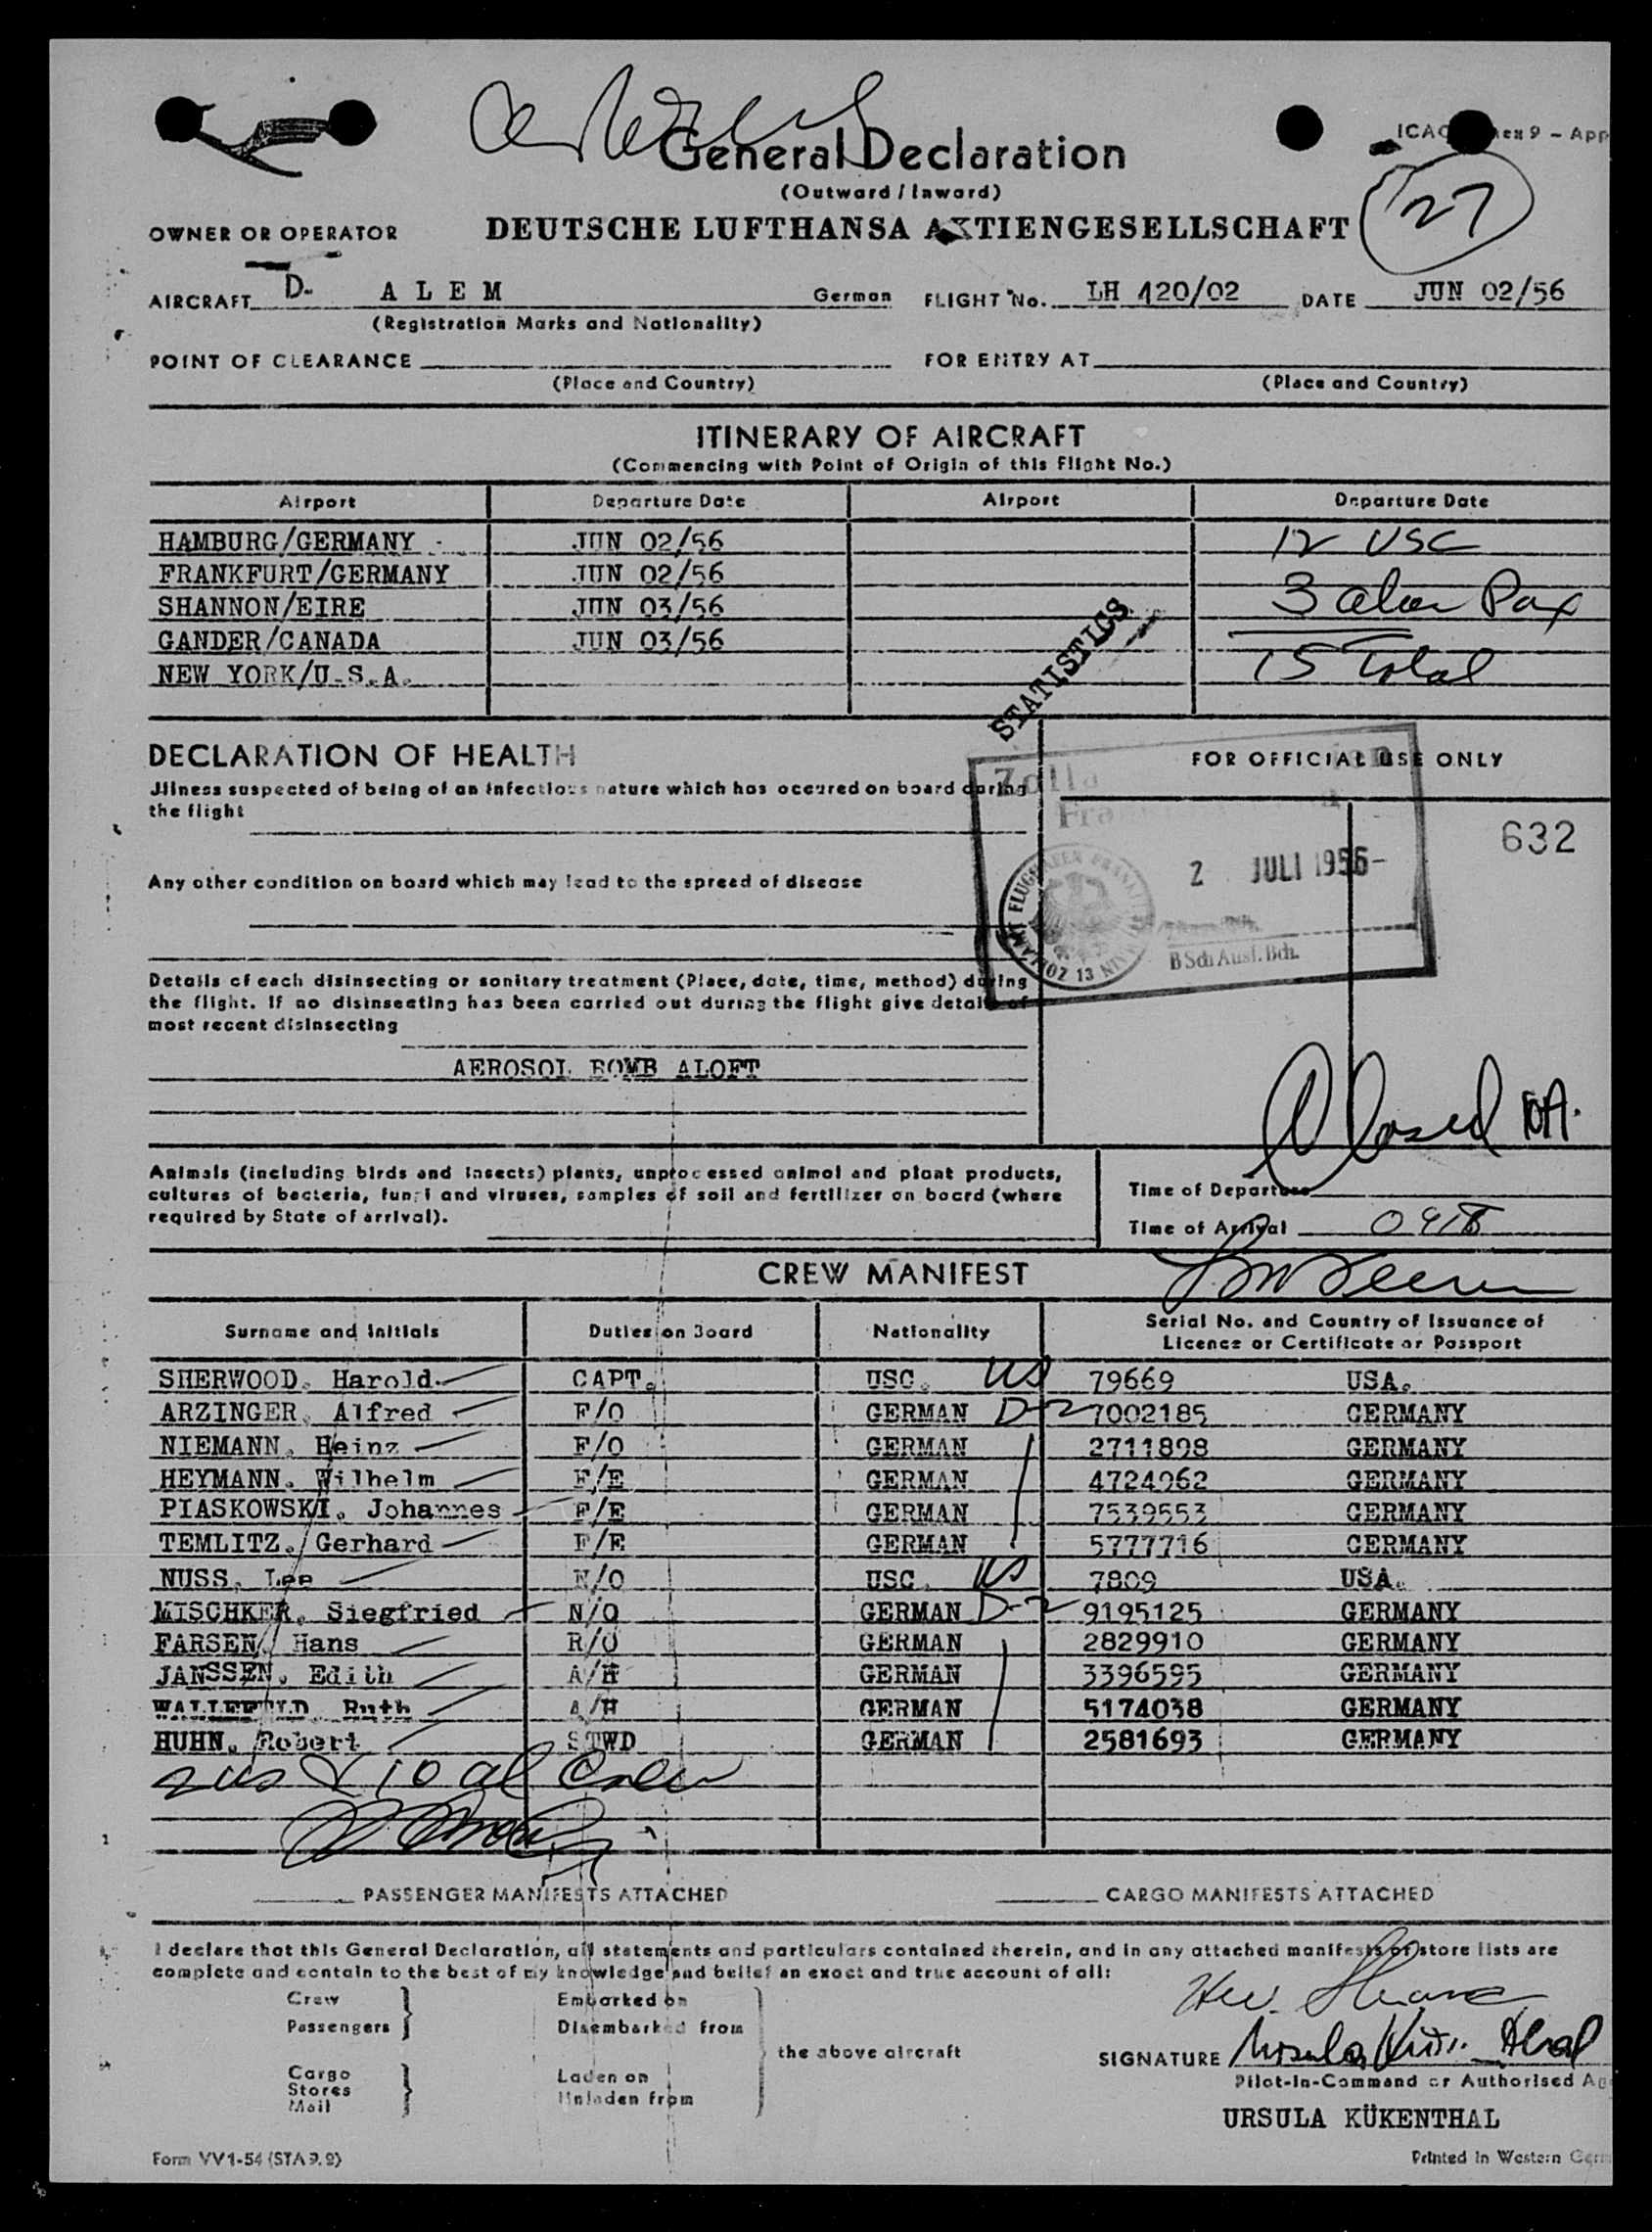 General Declaration
ICAO
9 - App
(Outward / Inward)
27
OWNER OR OPERATOR DEUTSCHE LUFTHANSA AKTIENGESELLSCHAFT
AIRCRAFT D- A L E M German FLIGHT No. LH 420/02 DATE JUN 02/56
(Registration Marks and Nationality)
POINT OF CLEARANCE FOR ENTRY AT
(Place and Country) (Place and Country)
ITINERARY OF AIRCRAFT
(Commencing with Point of Origin of this Flight No.)
Airport Departure Date Airport Departure Date
HAMBURG/GERMANY - JUN 02/56 12 USC
FRANKFURT/GERMANY JUN 02/56
SHANNON/EIRE JUN 03/56 3 alien Pax
GANDER/CANADA JUN 03/56
NEW YORK/U.S.A. 15 Total
STATISTICS
DECLARATION OF HEALTH
FOR OFFICIAL USE ONLY
Jllness suspected of being of an infectious nature which has occured on board during
the flight
632
2 JULI 1956-
Any other condition on board which may lead to the spread of disease
BSch Ausf. Bch.
Details of each disinsecting or sanitary treatment (Place, date, time, method) during
the flight. If no disinsecting has been carried out during the flight give details of
most recent disinsecting
AEROSOL BOMB ALOFT
Closed
Animals (including birds and insects) plants, unprocessed animal and plant products,
cultures of bacteria, fungi and viruses, samples of soil and fertilizer on board (where
required by State of arrival).
Time of Departure
Time of Arrival 0918
CREW MANIFEST
Surname and Initials Duties on Board Nationality Serial No. and Country of Issuance of
Licence or Certificate or Passport
SHERWOOD. Harold. CAPT. USC. US 79669 USA.
ARZINGER. Alfred F/O GERMAN D-2 7002185 GERMANY
NIEMANN. Heinz F/O GERMAN 2711898 GERMANY
HEYMANN. Wilhelm F/E GERMAN 4724962 GERMANY
PIASKOWSKI. Johannes F/E GERMAN 7539553 GERMANY
TEMLITZ. Gerhard F/E GERMAN 5777716 GERMANY
NUSS. Lee N/O USC. US 7809 USA.
MISCHKER. Siegfried N/O GERMAN D-2 9195125 GERMANY
FARSEN. Hans R/O GERMAN 2829910 GERMANY
JANSSEN. Edith A/H GERMAN 3396595 GERMANY
WALLEFELD Ruth A/H GERMAN 5174038 GERMANY
HUHN. Robert STWD GERMAN 2581693 GERMANY
2 us & 10 al Crew
PASSENGER MANIFESTS ATTACHED CARGO MANIFESTS ATTACHED
I declare that this General Declaration, all statements and particulars contained therein, and in any attached manifests of store lists are
complete and contain to the best of my knowledge and belief an exact and true account of all:
Crew Embarked on
Passengers Disembarked from
the above aircraft
Cargo Laden on
Stores
Mail Unladen from
SIGNATURE
Pilot-In-Command or Authorised
URSULA KÜKENTHAL
Form VV1-54 (STA 9.9) Printed in Western